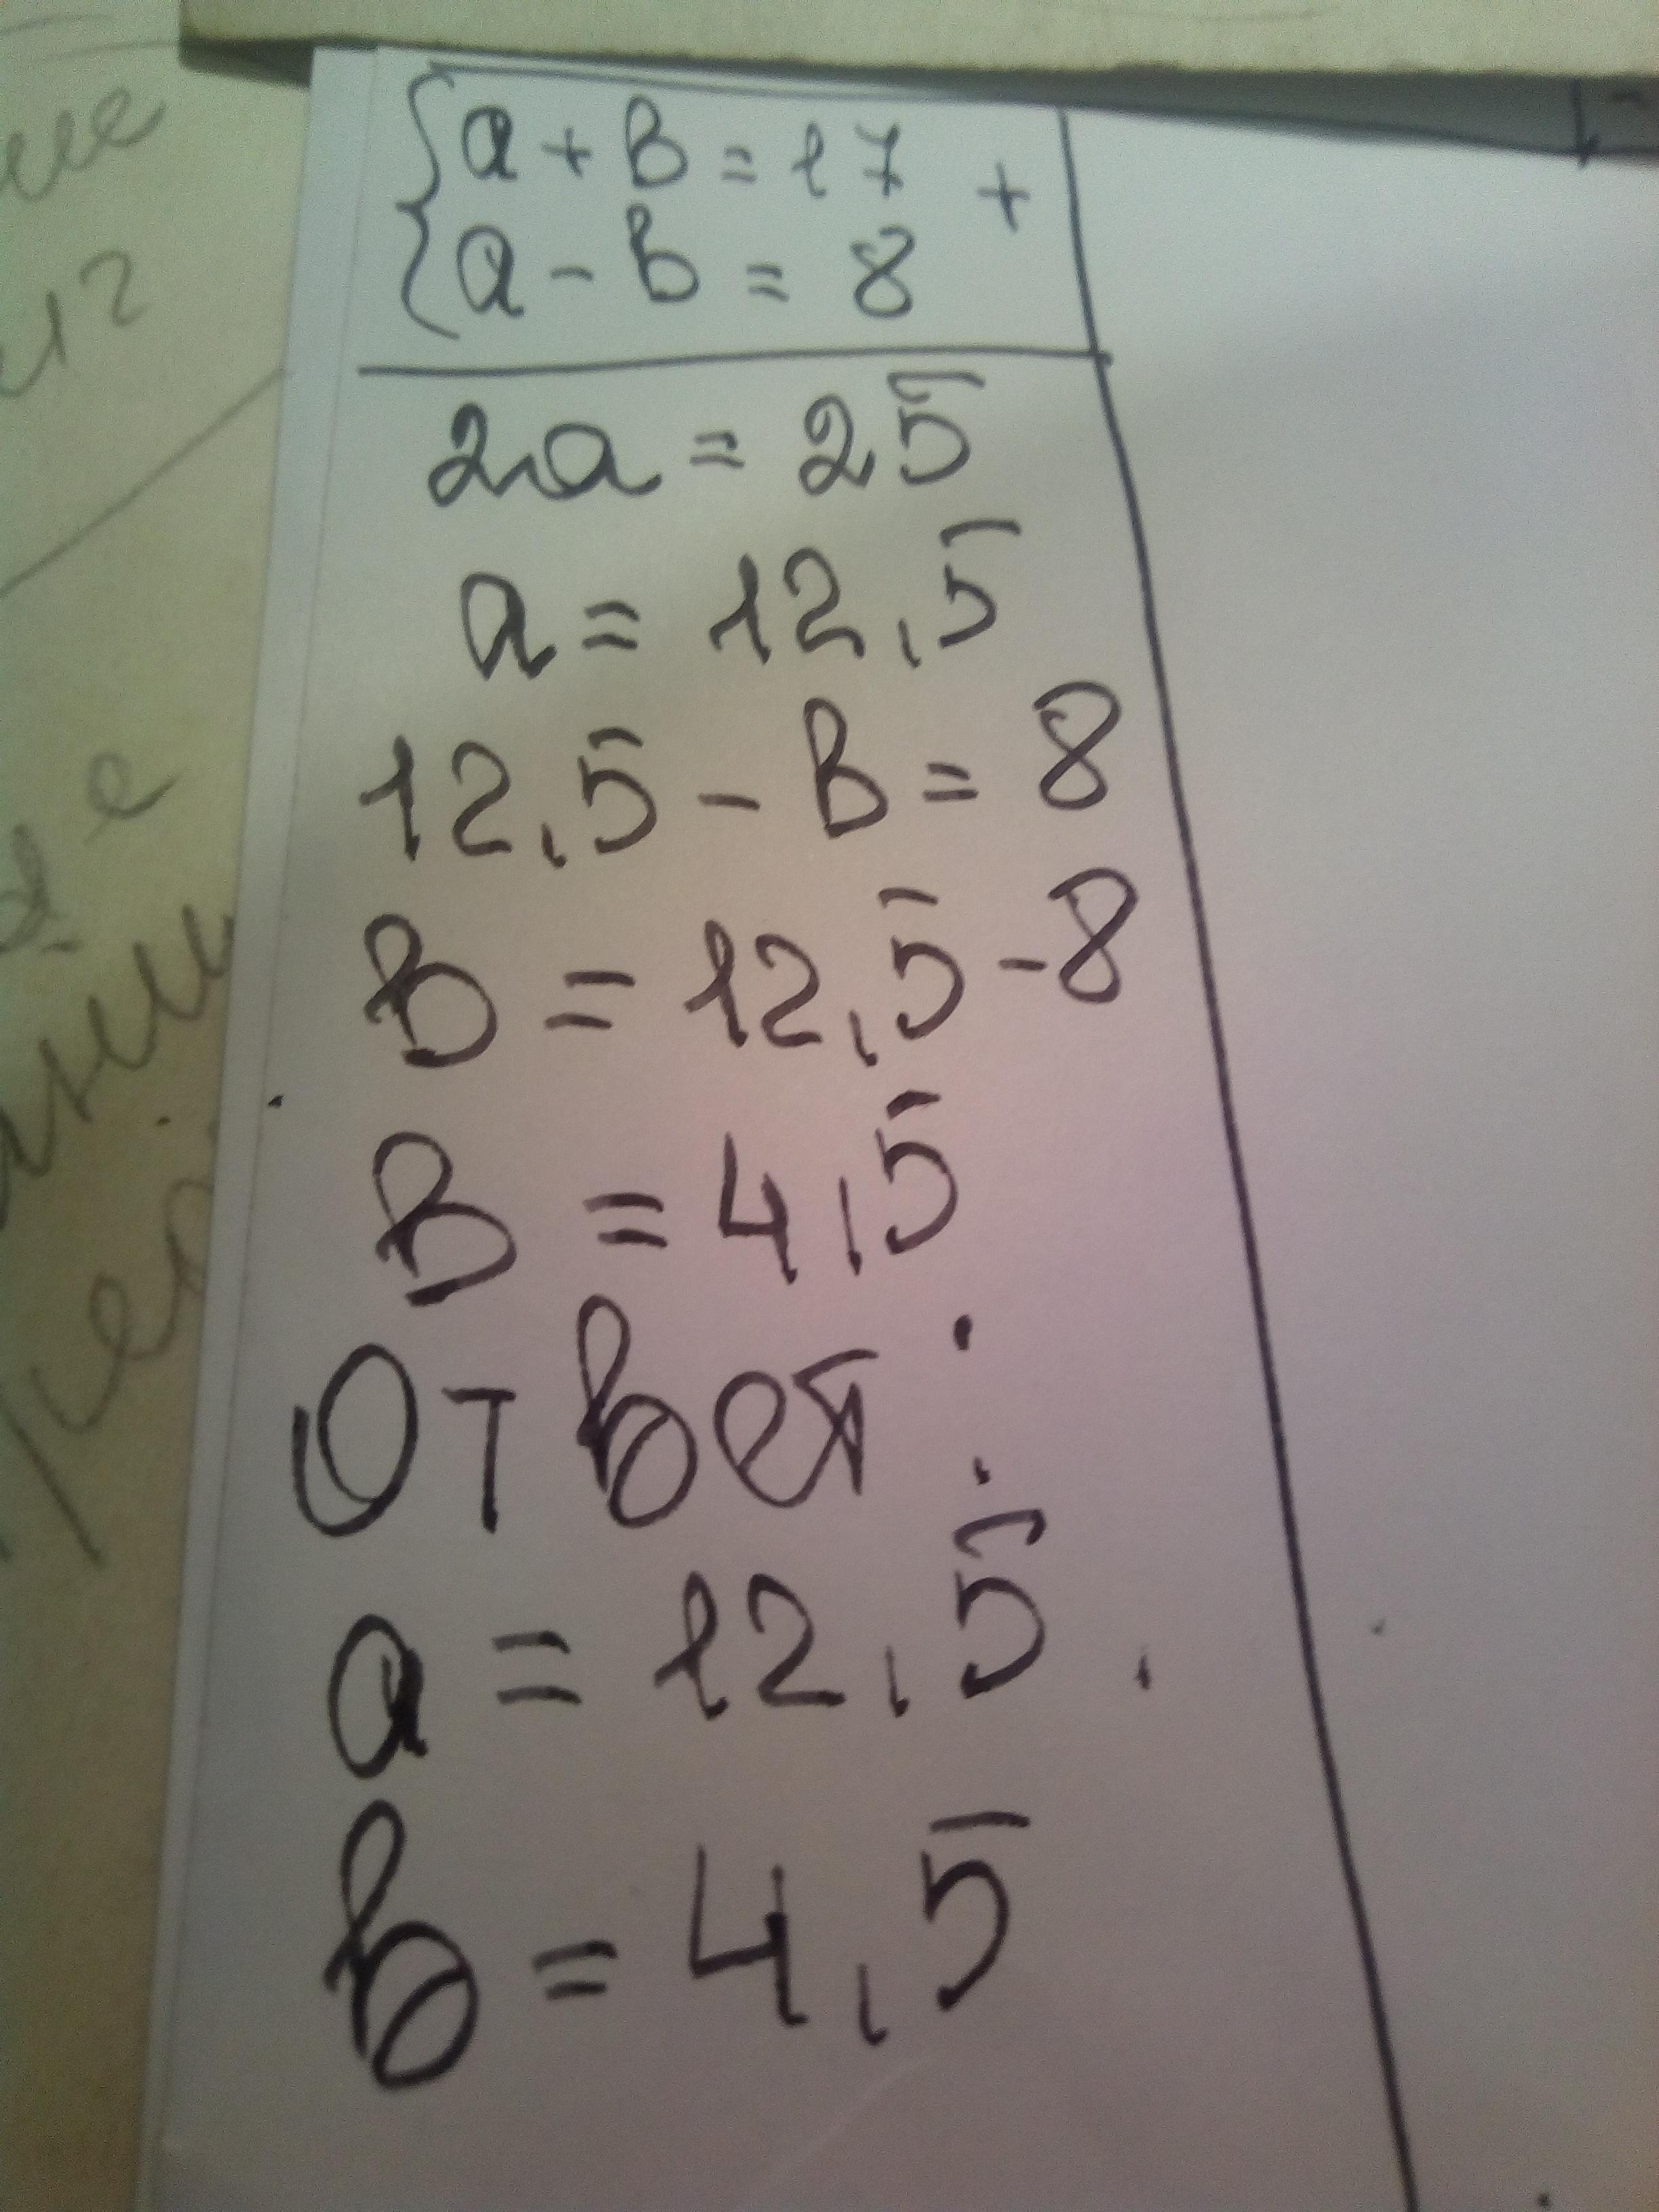 a + в = 17 +
a - в = 8
2a = 25
a = 12,5
12,5 - в = 8
в = 12,5 - 8
в = 4,5
Ответ:
a = 12,5
в = 4,5